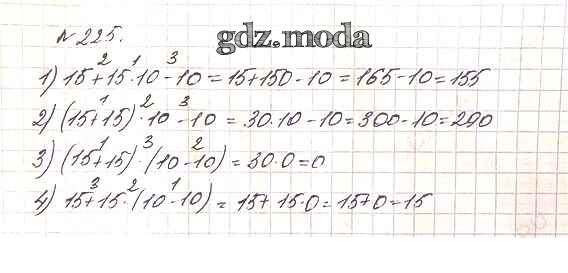 № 225.
gdz.moda
1) 15+15·10-10=15+150-10=165-10=155
2) (15+15)·10-10=30·10-10=300-10=290
3) (15+15)·(10-10)=30·0=0
4) 15+15·(10-10)=15+15·0=15+0=15